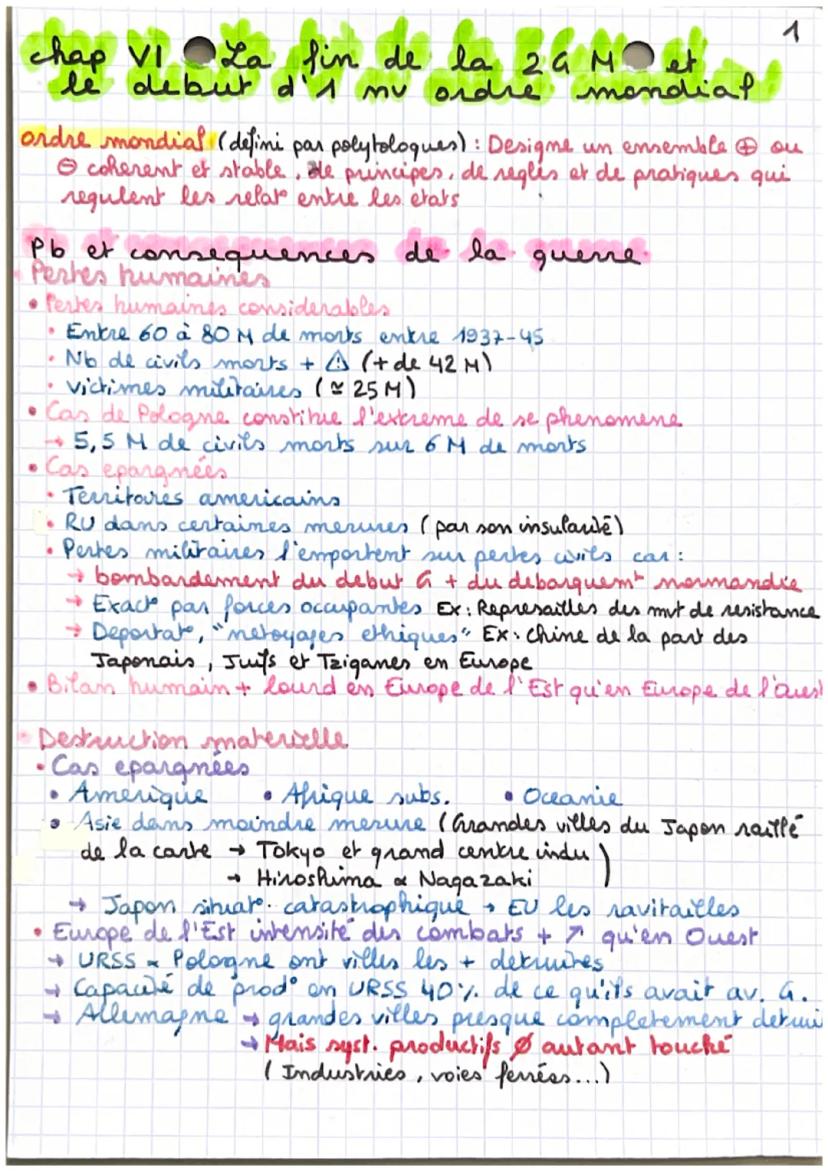 1
chap VI La fin de la 2 G M et
le debut d'1 nv ordre mondial
ordre mondial (défini par polytologues) : Designe un ensemble ⊕ ou
⊖ coherent et stable, de principes, de regles et de pratiques qui
regulent les relat° entre les etats
Pb et consequences de la guerre
Pertes humaines
• Pertes humaines considerables
• Entre 60 à 80 M de morts entre 1937-45
• Nb de civils morts + ⚠ (+ de 42 M)
• victimes militaires (≃ 25 M)
• Cas de Pologne constitue l'extreme de se phenomene
→ 5,5 M de civils morts sur 6 M de morts
• Cas epargnées
• Territoires americains
• RU dans certaines mesures (par son insularité)
• Pertes militaires l'emportent sur pertes civils car :
→ bombardement du debut G + du debarquemt normandie
→ Exact° par forces occupantes Ex : Represailles des mvt de resistance
→ Deportat°, "netoyages ethiques" Ex : Chine de la part des
Japonais, Juifs et Tziganes en Europe
• Bilan humain + lourd en Europe de l'Est qu'en Europe de l'Ouest
Destruction materielle
• Cas epargnées
• Amerique • Afrique subs. • Oceanie
• Asie dans moindre mesure (Grandes villes du Japon raillé
de la carte → Tokyo et grand centre indu
→ Hiroshima & Nagazaki )
→ Japon situat°. catastrophique → EU les ravitailles
• Europe de l'Est intensité des combats + ↗ qu'en Ouest
→ URSS & Pologne ont villes les + detruires
→ Capacité de prod° en URSS 40% de ce qu'ils avait av. G.
→ Allemagne → grandes villes presque completement detrui
→ Mais syst. productifs Ø autant touché
( Industries, voies ferrées...)